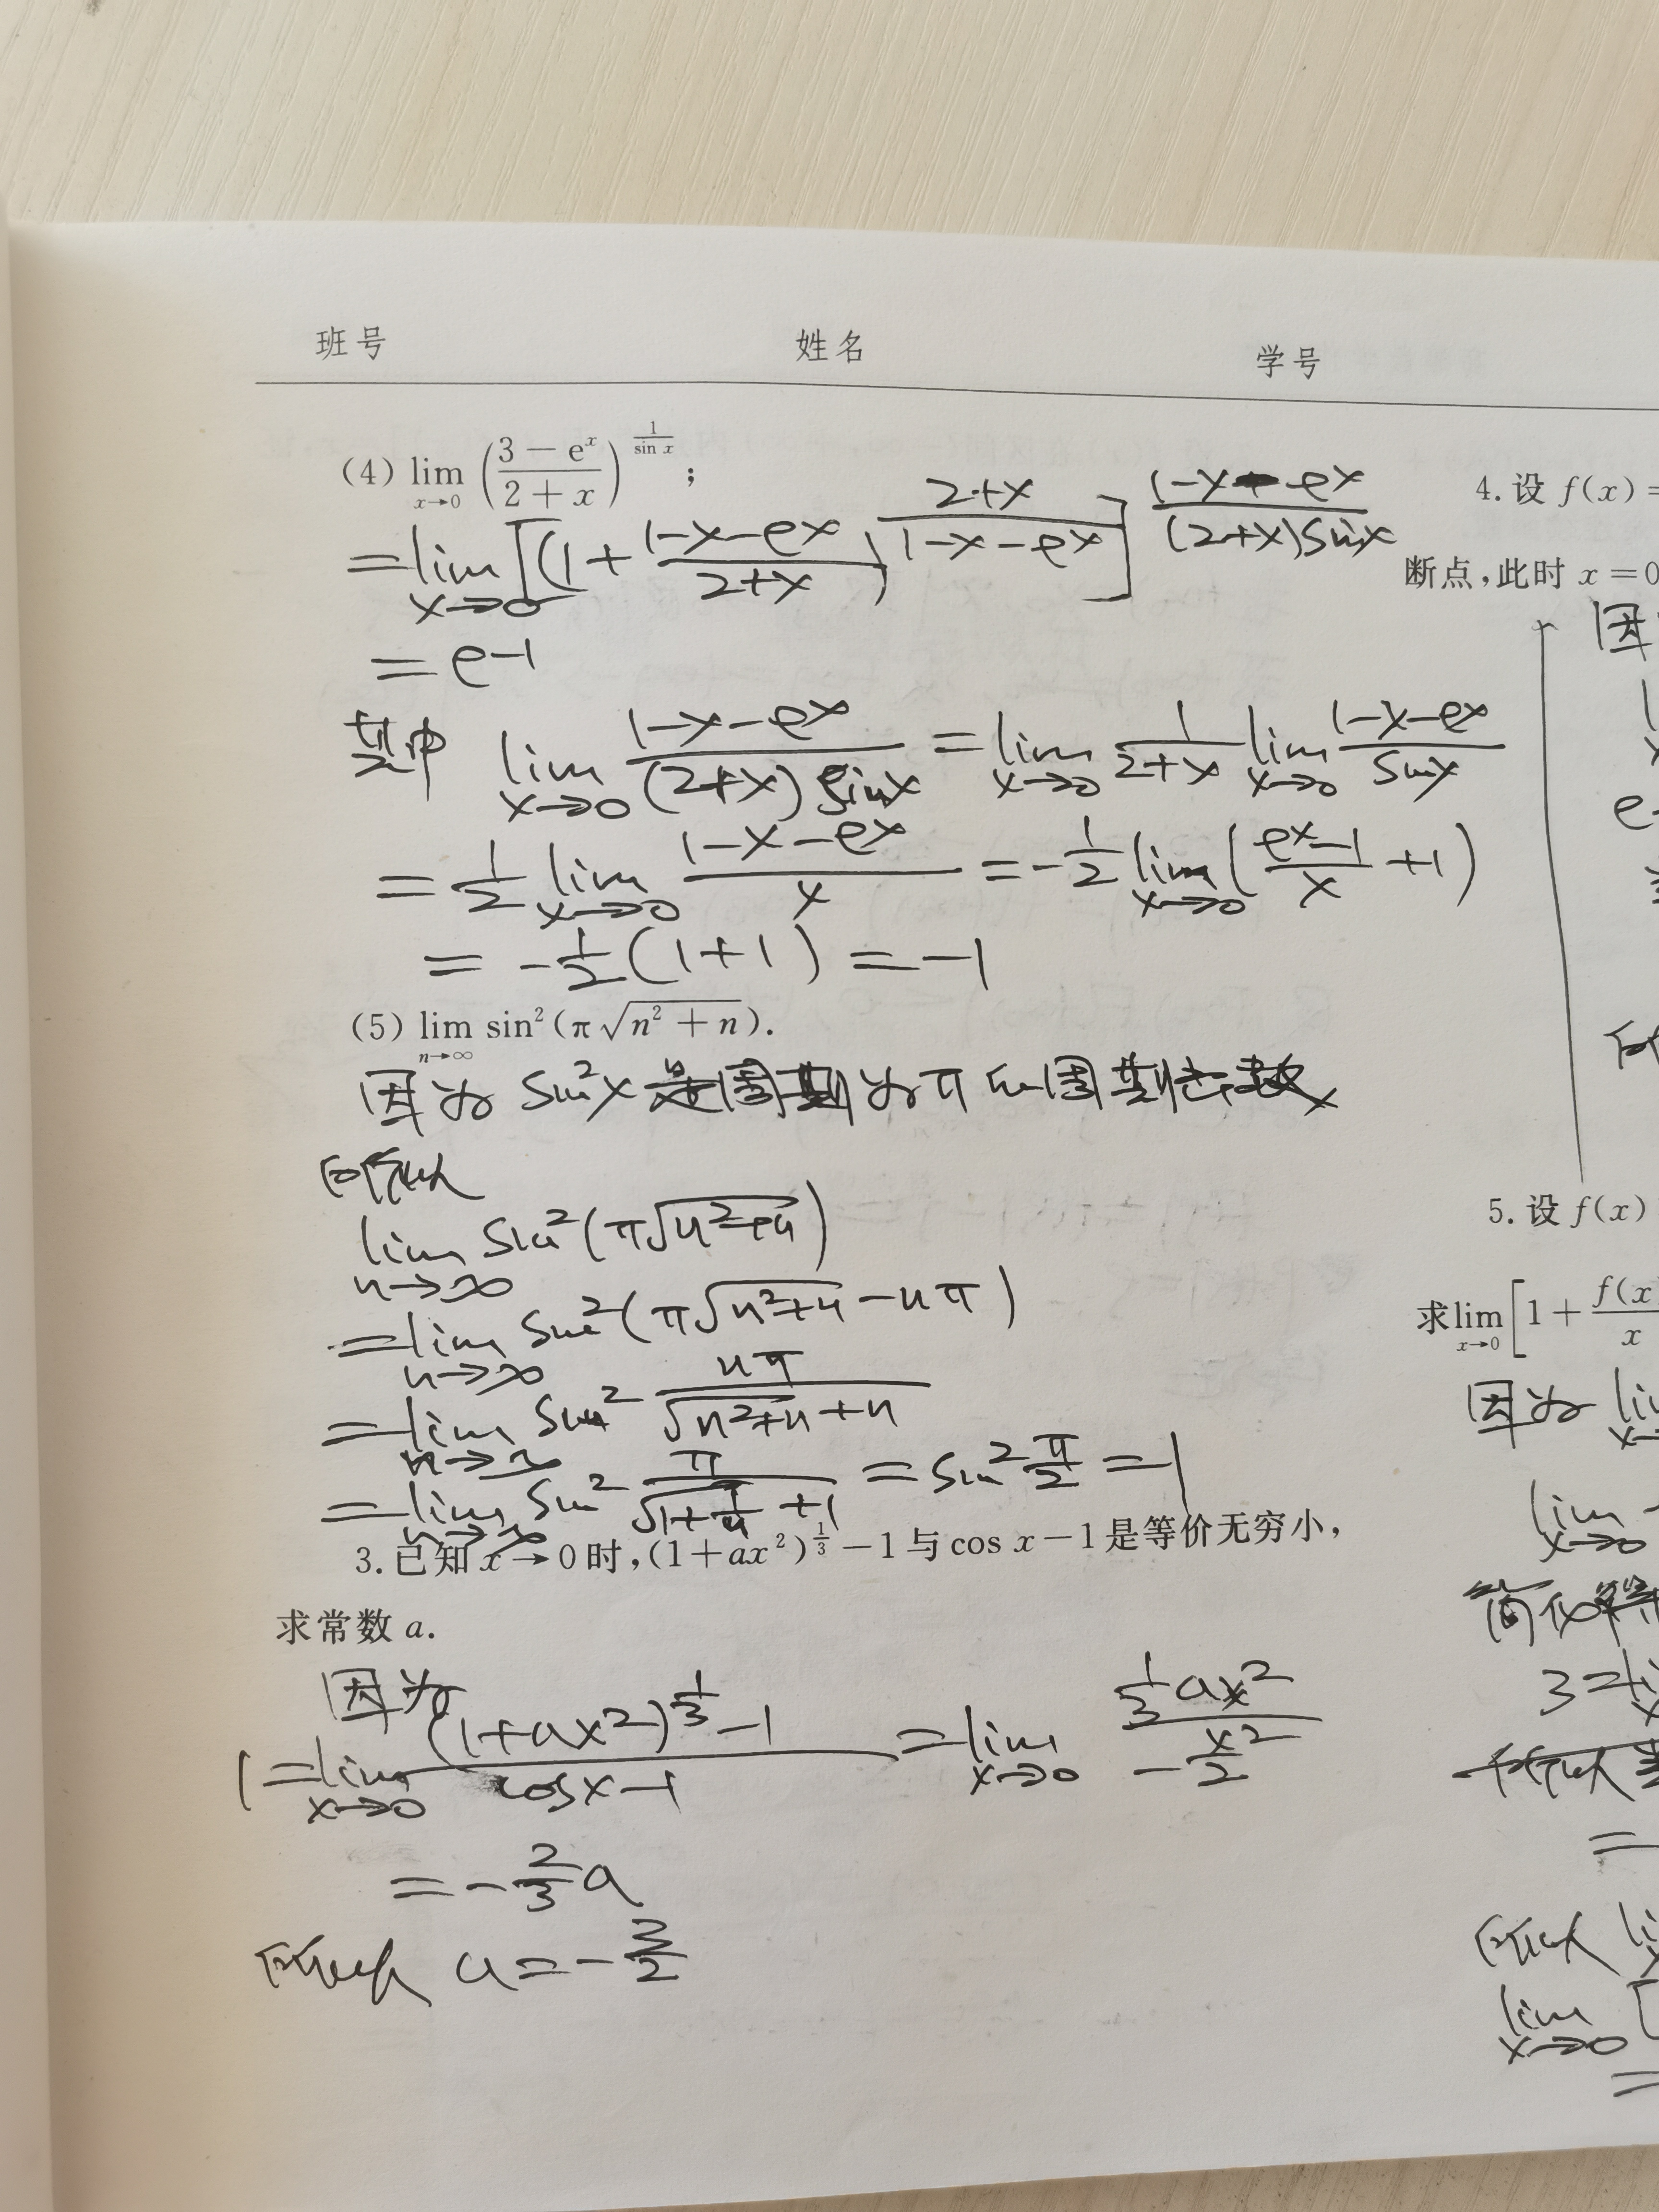 班号 姓名 学号
(4) lim_{x→0} ((3 - e^x)/(2 + x))^{1/sin x};
= lim_{x→0} [(1 + (1-x-e^x)/(2+x))^{(2+x)/(1-x-e^x)}]^{(1-x-e^x)/((2+x)sinx)}
= e^{-1}
其中 lim_{x→0} (1-x-e^x)/((2+x)sinx) = lim_{x→0} 1/(2+x) lim_{x→0} (1-x-e^x)/sinx
= 1/2 lim_{x→0} (1-x-e^x)/x = -1/2 lim_{x→0} ((e^x-1)/x +1)
= -1/2(1+1) = -1
(5) lim_{n→∞} sin²(π√(n² + n)).
因为 sin²x 是周期为π的周期函数
所以
lim_{n→∞} sin²(π√(n²+n))
= lim_{n→∞} sin²(π√(n²+n) - nπ)
= lim_{n→∞} sin² nπ/(√(n²+n)+n)
= lim_{n→∞} sin² π/(√(1+1/n)+1) = sin² π/2 = 1
3. 已知 x→0 时,(1+ax²)^{1/3}-1与cos x-1是等价无穷小,
求常数 a.
因为
1 = lim_{x→0} ((1+ax²)^{1/3}-1)/(cosx-1) = lim_{x→0} (1/3 ax²)/(-x²/2)
= -2/3 a
所以 a = -3/2
4. 设 f(x) =
断点,此时 x = 0
因
5. 设 f(x)
求 lim_{x→0} [1 + f(x)/x
因为 lim_{x→
lim_{x→0}
简化
3 =
=
所以
lim_{x→0} [
=